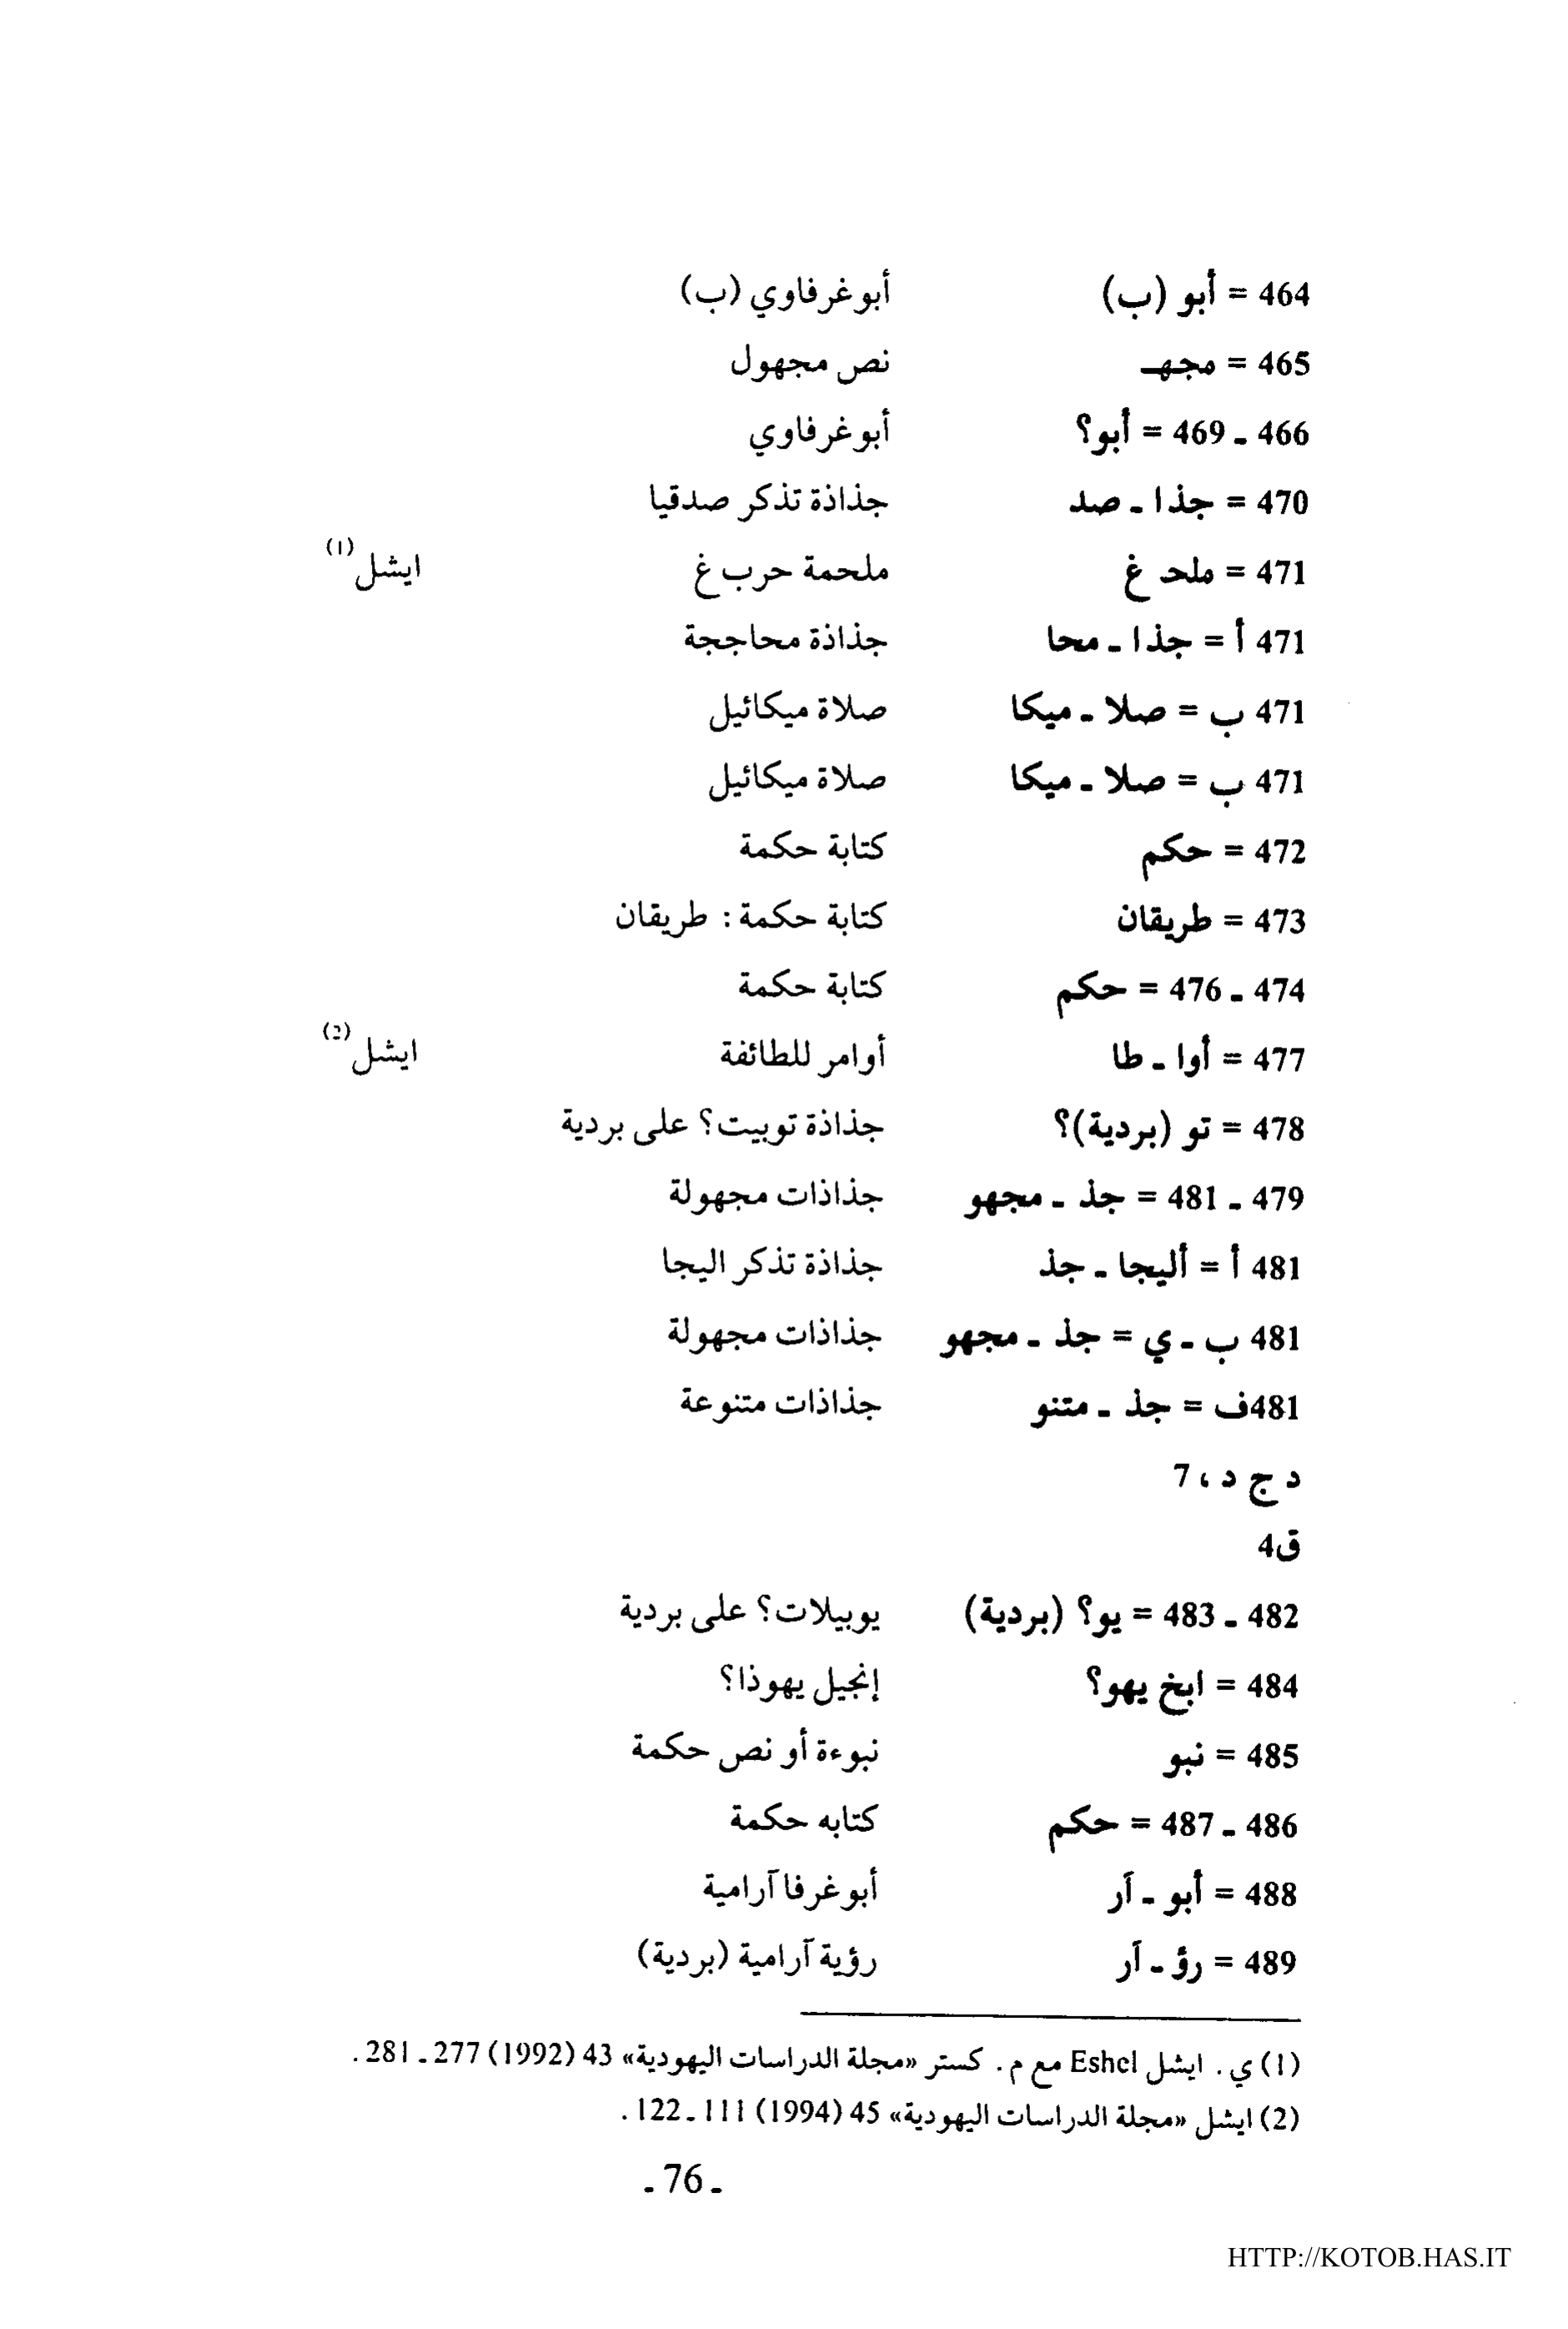 464 = أبو (ب) أبوغرفاوي (ب)
465 = مجهـ نص مجهول
466 ـ 469 = أبو؟ أبوغرفاوي
470 = جذا ـ صد جذاذة تذكر صدقيا
471 = ملحـ غ ملحمة حرب غ ايشل(1)
471 أ = جذا ـ محا جذاذة محاججة
471 ب = صلا ـ ميكا صلاة ميكائيل
471 ب = صلا ـ ميكا صلاة ميكائيل
472 = حكم كتابة حكمة
473 = طريقان كتابة حكمة : طريقان
474 ـ 476 = حكم كتابة حكمة
477 = أوا ـ طا أوامر للطائفة ايشل(2)
478 = تو (بردية)؟ جذاذة توبيت؟ على بردية
479 ـ 481 = جذ ـ مجهو جذاذات مجهولة
481 أ = أليجا ـ جذ جذاذة تذكر اليجا
481 ب ـ ي = جذ ـ مجهو جذاذات مجهولة
481ف = جذ ـ متنو جذاذات متنوعة
د ج د ، 7
ق4
482 ـ 483 = يو؟ (بردية) يوبيلات؟ على بردية
484 = ابخ يهو؟ إنجيل يهوذا؟
485 = نبو نبوءة أو نص حكمة
486 ـ 487 = حكم كتابه حكمة
488 = أبو ـ آر أبوغرفا آرامية
489 = رؤ ـ آر رؤية آرامية (بردية)
(1) ي . ايشل Eshel مع م . كستر «مجلة الدراسات اليهودية» 43 (1992) 277 ـ 281 .
(2) ايشل «مجلة الدراسات اليهودية» 45 (1994) 111 ـ 122 .
ـ 76 ـ
HTTP://KOTOB.HAS.IT